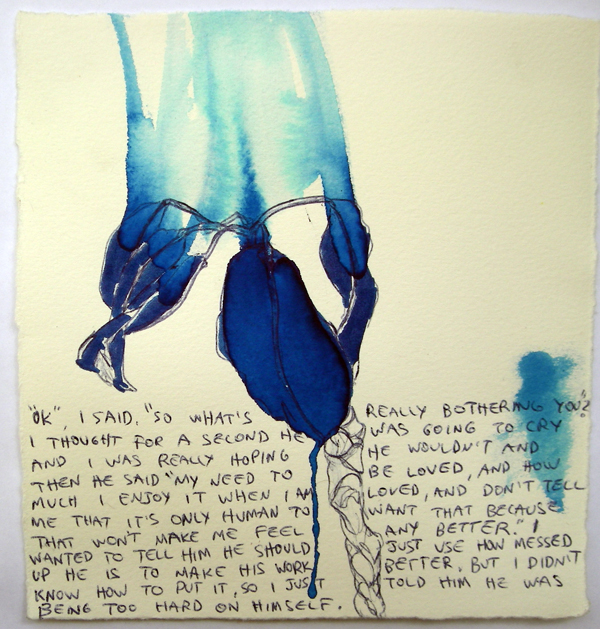 "OK", I SAID. "SO WHAT'S REALLY BOTHERING YOU?"
I THOUGHT FOR A SECOND HE WAS GOING TO CRY
AND I WAS REALLY HOPING HE WOULDN'T AND
THEN HE SAID "MY NEED TO BE LOVED, AND HOW
MUCH I ENJOY IT WHEN I AM LOVED, AND DON'T TELL
ME THAT IT'S ONLY HUMAN TO WANT THAT BECAUSE
THAT WON'T MAKE ME FEEL ANY BETTER." I
WANTED TO TELL HIM HE SHOULD JUST USE HOW MESSED
UP HE IS TO MAKE HIS WORK BETTER, BUT I DIDN'T
KNOW HOW TO PUT IT, SO I JUST TOLD HIM HE WAS
BEING TOO HARD ON HIMSELF.